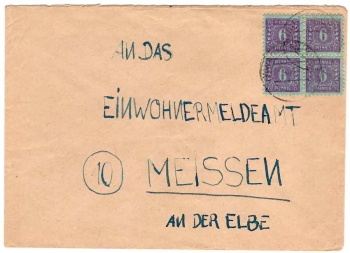 AN DAS
EINWOHNERMELDEAMT
10 MEISSEN
AN DER ELBE
6 6
6 6